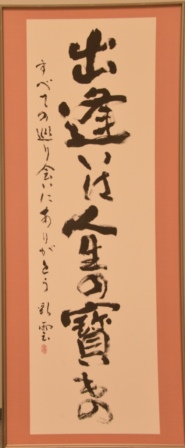 出逢いは人生の寳もの
すべての巡り会いにありがとう 彩雲